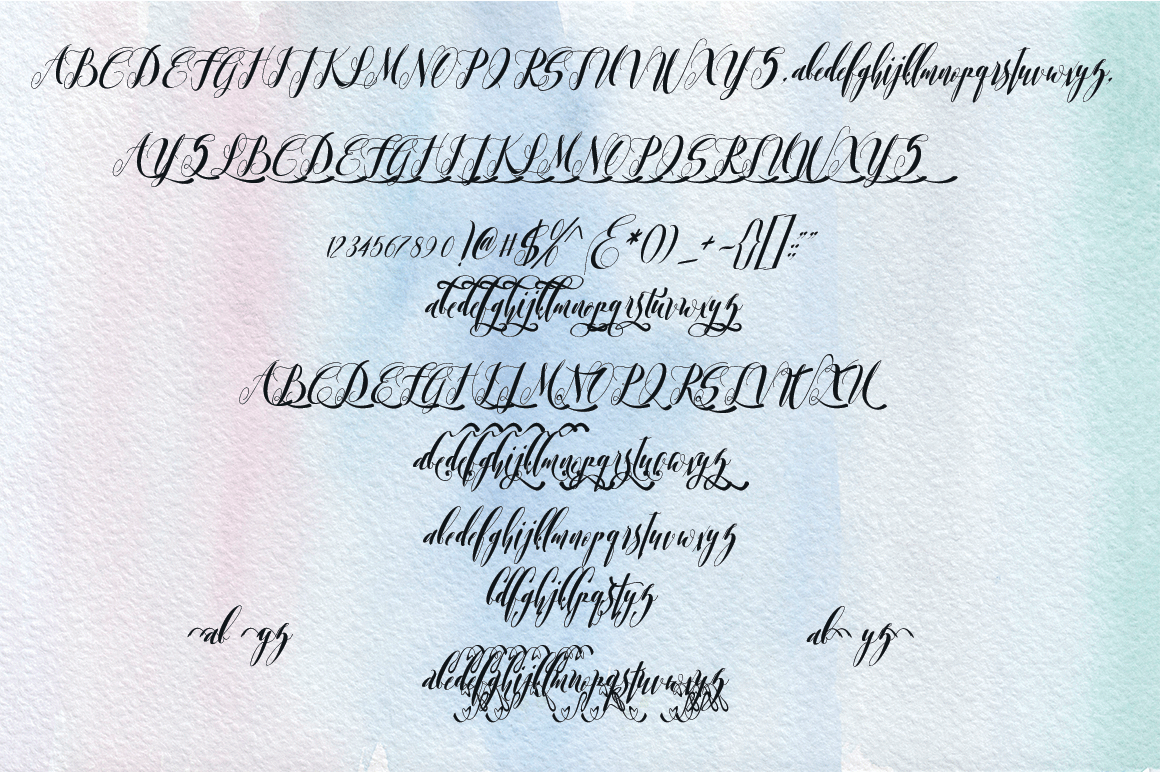 ABCDEFGHIJKLMNOPQRSTUVWXYZ.abcdefghijklmnopqrstuvwxyz.
AYZLBCDEFGHIJKLMNOPQSRTUVWXYZ
1234567890!@#$%^&*()_+~{}[]:;"'
abcdefghijklmnopqrstuvwxyz
abcdefghijklmnopqrstuvwxyz
abcdefghijklmnopqrstuvwxyz
bdfghjklpqstyz
ab gz ab yz
abcdefghijklmnopqrstuvwxyz